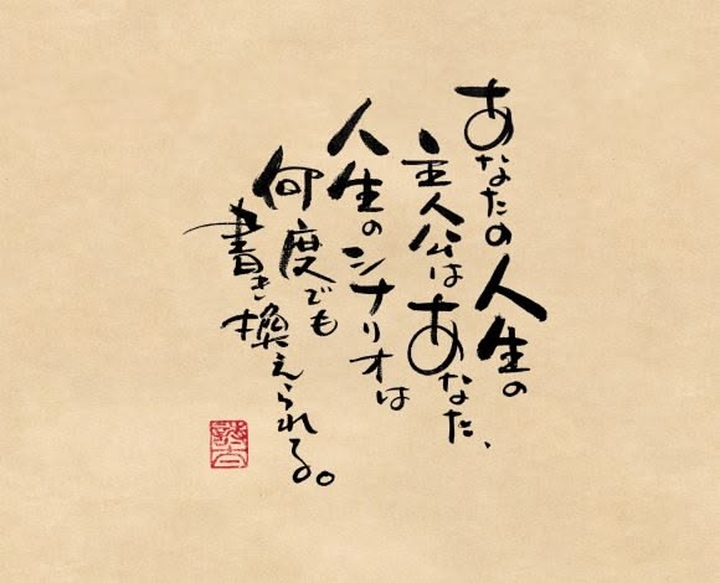 あなたの人生の
主人公はあなた、
人生のシナリオは
何度でも
書き換えられる。